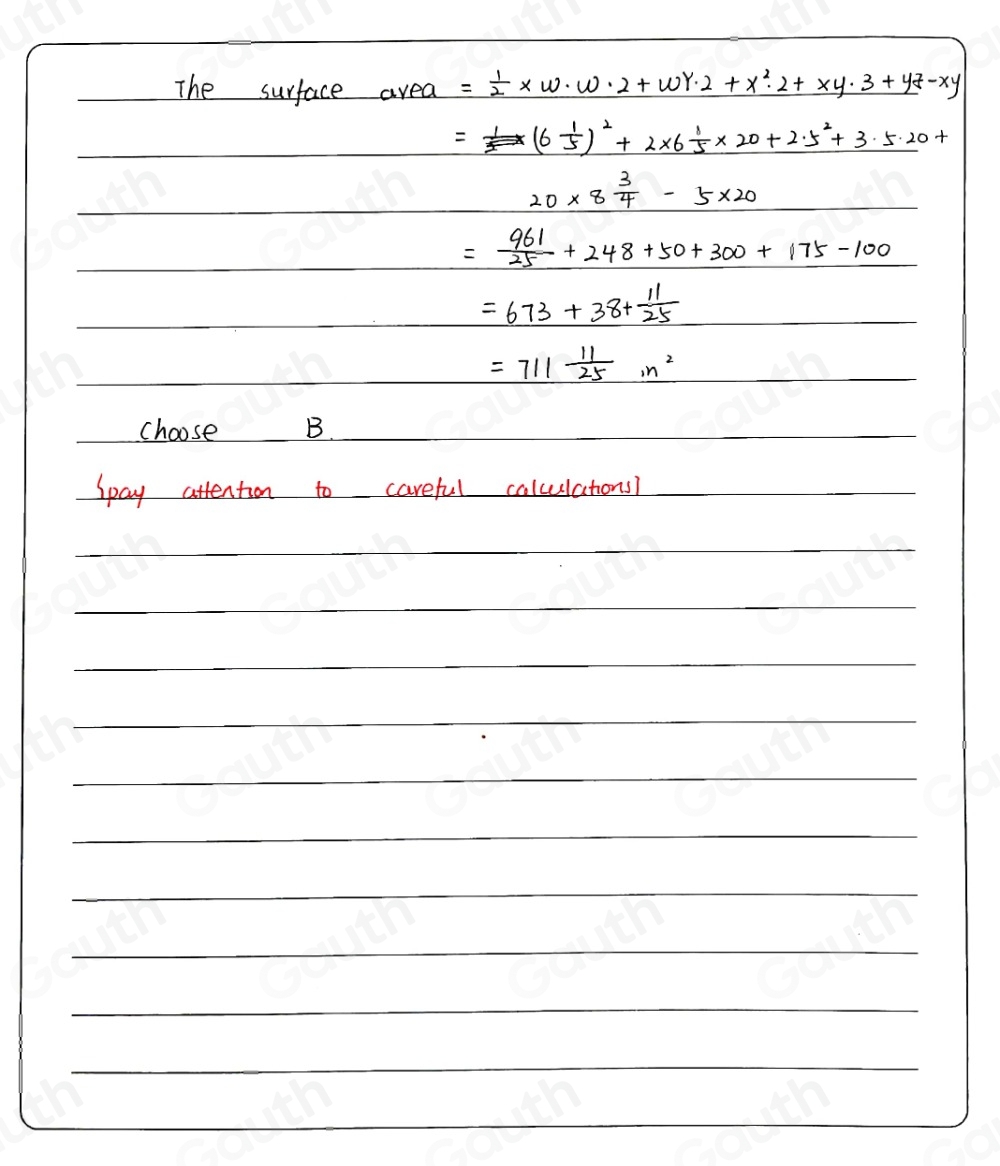 The surface area = 1/2 × w · w · 2 + wY · 2 + x² · 2 + xy · 3 + yz - xy
= (6 1/5)² + 2×6 1/5 × 20 + 2·5² + 3 · 5 · 20 +
20 × 8 3/4 - 5×20
= 961/25 + 248 + 50 + 300 + 175 - 100
= 673 + 38 + 11/25
= 711 11/25 in²
Choose B.
{pay attention to careful calculations]